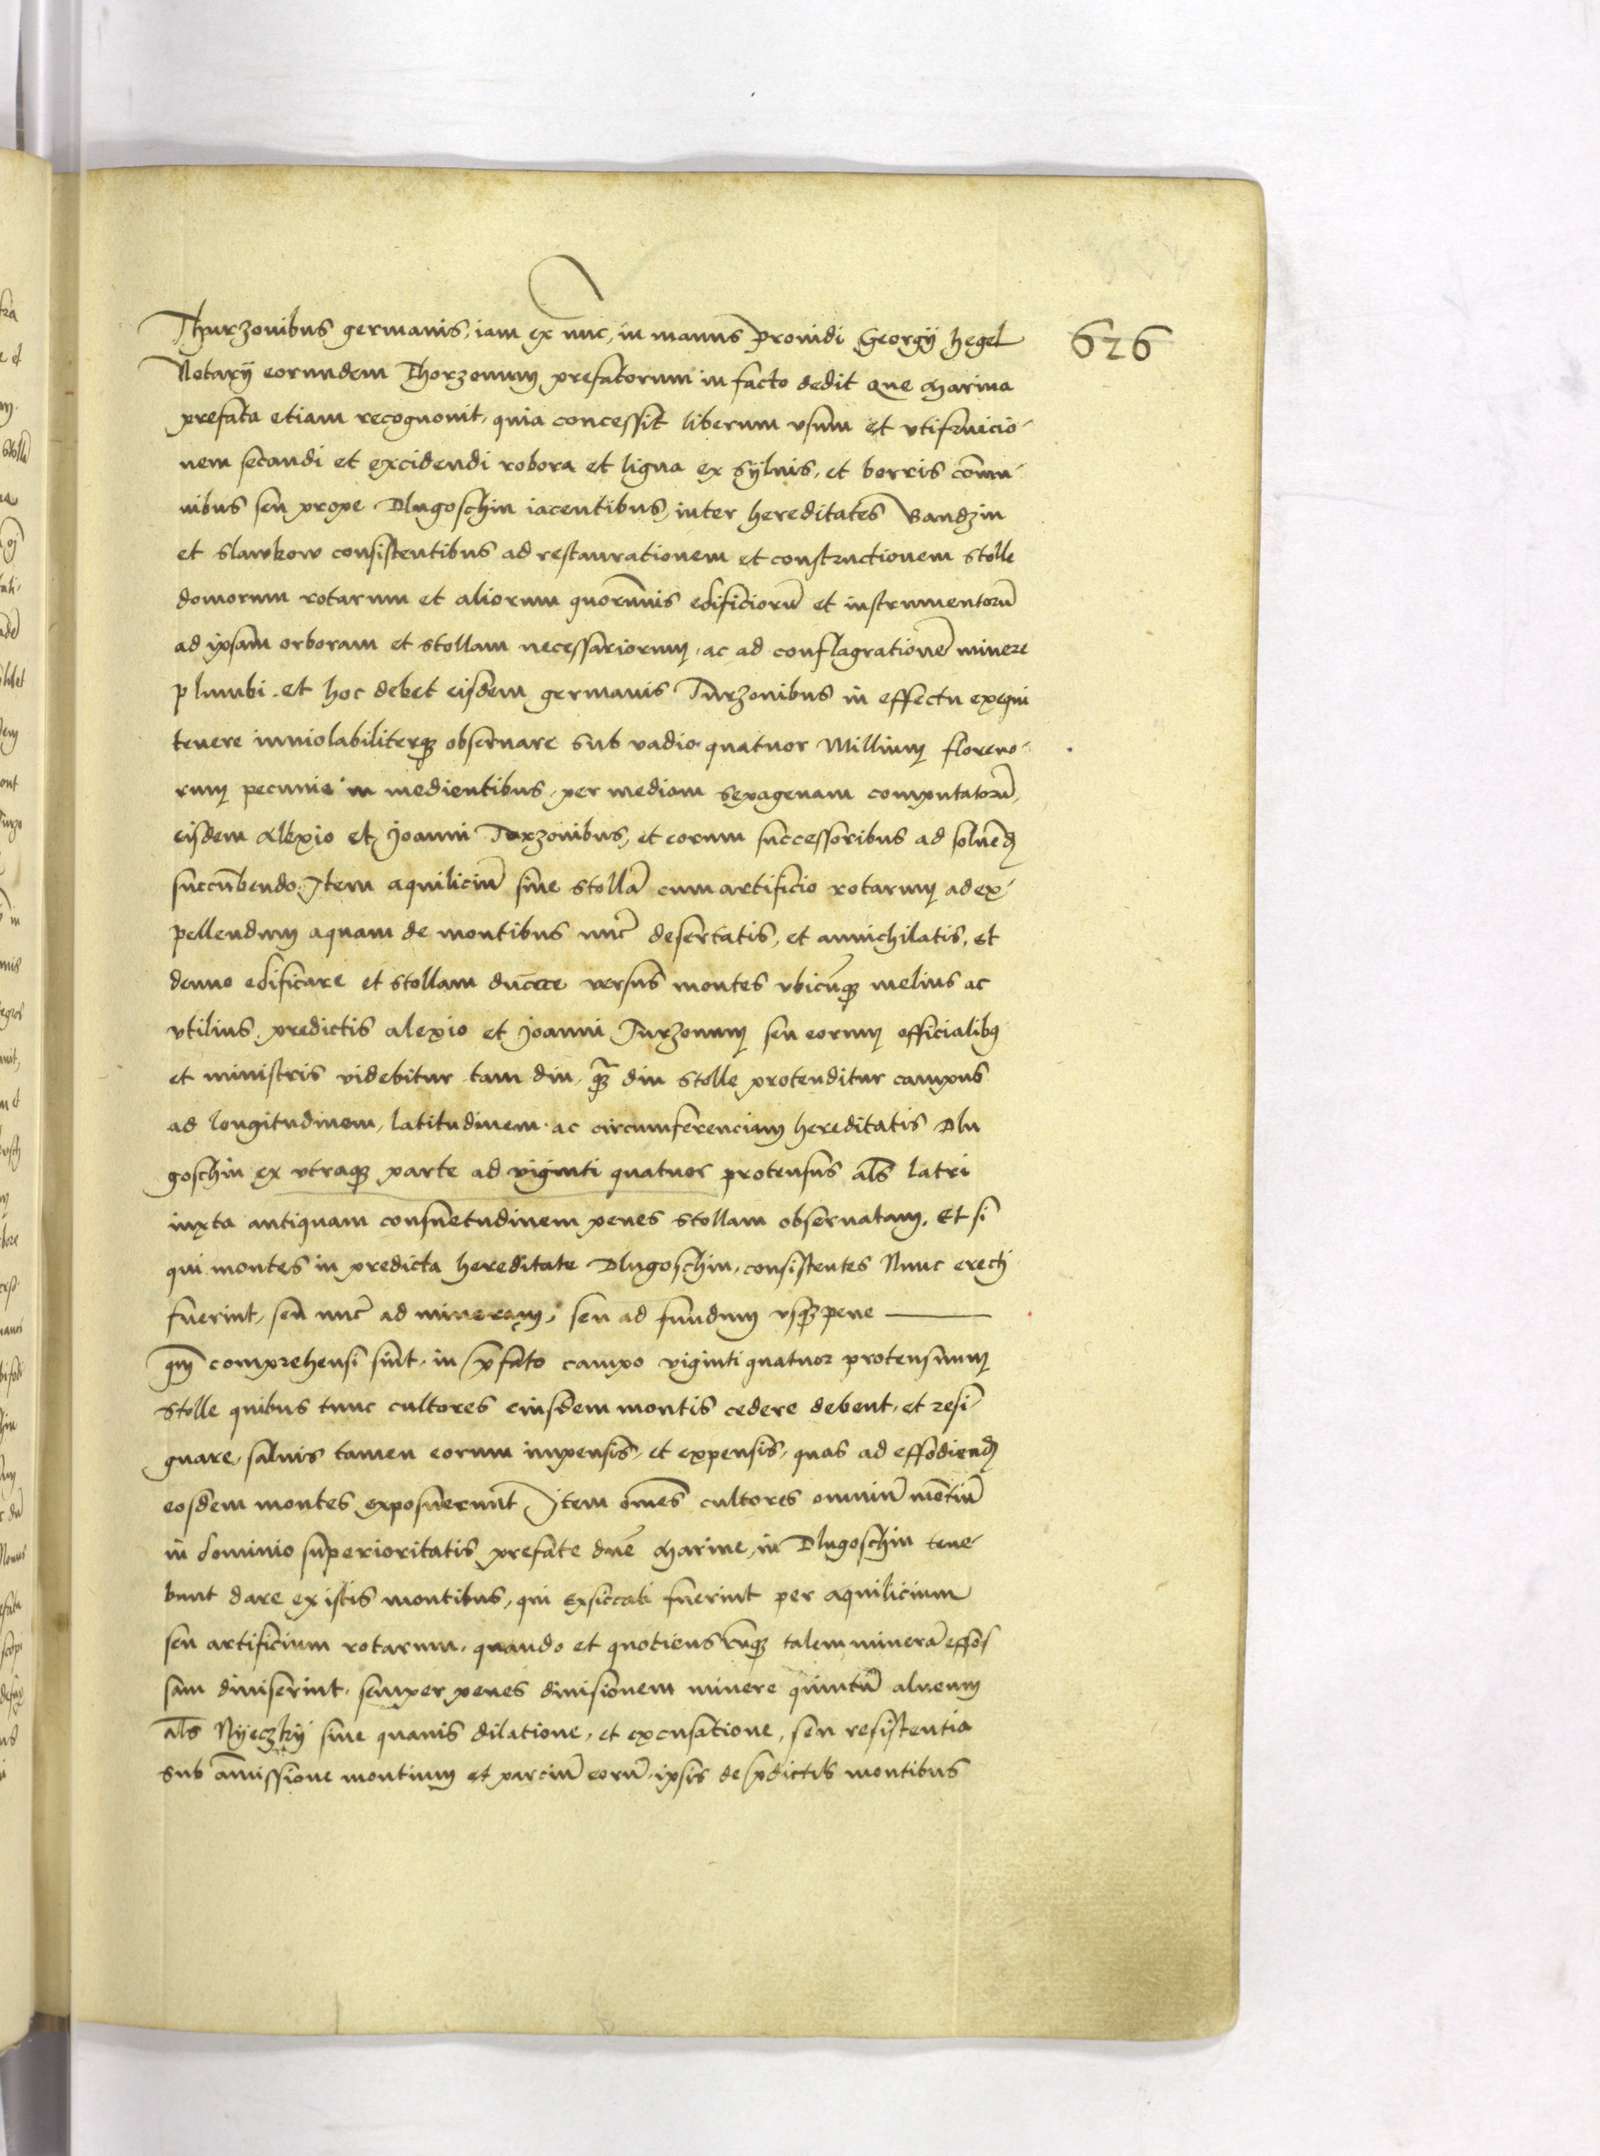 626
Thurzonibus germanis, iam ex nuc, in manus Prouidi Georgÿ hegel
Notarÿ eorundem Thorzonum prefatorum in facto dedit Que Marina
prefata etiam recognouit, quia concessit liberum vsum et vtifruicio-
nem secandi et excidendi robora et ligna ex sÿluis, et borris com̄u-
nibus seu prope Dlugoschin iacentibus, inter hereditates Bandzin
et Slawkow consistentibus ad restaurationem et constructionem stolle
domorum rotarum et aliorum quorumuis edificiorū et instrumentorū
ad ipsam orboram et stollam necessariorum, ac ad conflagrationē minere
plumbi. et hoc debet eisdem germanis Turzonibus in effectu exequi
tenere inuiolabiliterqꝫ obseruare Sub vadio quatuor Millium floreno-
rum pecunie in medientibus, per mediam sexagenam computatorū,
eisdem Alexio et Joanni Torzonibus, et eorum successoribus ad soluēd
succūbendo. Item aquiliciū siue stollā cum artificio rotarum ad ex-
pellendum aquam de montibus nūc desertatis, et annichilatis, et
denuo edificare et stollam ducere versus montes vbicūqꝫ melius ac
vtilius, predictis alexio et Joanni Turzonum seu eorum officialibꝫ
et ministris videbitur tam diu, qꝫ̄ diu stolle protenditur campus
ad longitudinem, latitudinem. ac circumferenciam hereditatis Dlu
goschin ex vtraqꝫ parte ad viginti quatuor protensus al̄s latri
iuxta antiquam consuetudinem penes stollam obseruatam, Et si
qui montes in predicta hereditate Dlugoschin, consistentes Nunc erecti
fuerint, seu nūc ad mineram, seu ad fundum vsqꝫ pene
qm̄ comprehensi sint, in p̄fato campo viginti quatuor protensuum
Stolle quibus tunc cultores eiusdem montis cedere debent, et resi-
gnare, saluis tamen eorum impensis, et expensis, quas ad effodiend
eosdem montes exposuerunt Item om̄es cultores omniū mōtiū
in dominio superioritatis prefate dn̄e Marine, in Dlugoschin tene-
bunt dare ex istis montibus, qui exsiccati fuerint per aquilicium
seu artificium rotarum, quando et quotienscūqꝫ talem minerā effos
sam diuiserint, semper penes diuisionem minere quintū alueum
al̄s Nyeczky sine quauis dilatione, et excusatione, seu resistentia
sub amissione montium et parciū eorū, ipsis de p̄dictis montibus